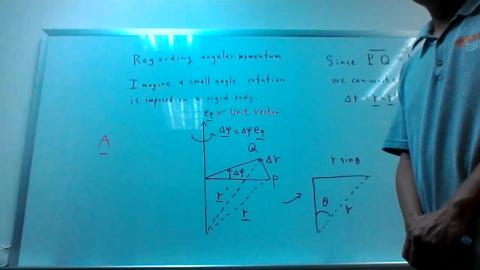 Regarding angular momentum
Imagine a small angle rotation
is imposed on a rigid body.
eφ: Unit vector
Δφ = Δφ eφ
Q
Δr
Δφ
P
r
r
A
Since PQ =
we can write
Δr =
r sinθ
θ
r